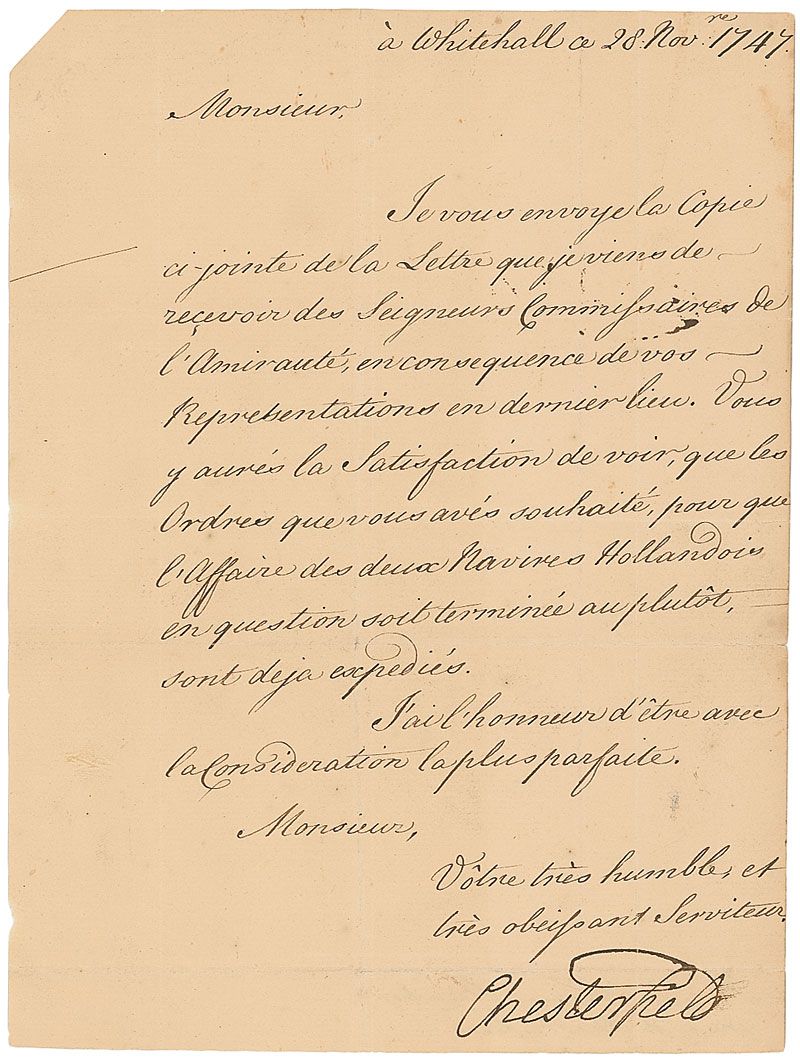 à Whitehall ce 28. Nov.re 1747.
Monsieur,
Je vous envoye la Copie
ci-jointe de la Lettre que je viens de
recevoir des Seigneurs Commissaires de
l'Amirauté, en consequence de vos
Representations en dernier lieu. Vous
y aurés la Satisfaction de voir, que les
Ordres que vous avés souhaité, pour que
l'Affaire des deux Navires Hollandois
en question soit terminée au plutôt,
sont deja expediés.
J'ai l'honneur d'être avec
la Consideration la plus parfaite.
Monsieur,
Vôtre très humble, et
très obeissant Serviteur.
Chesterfield